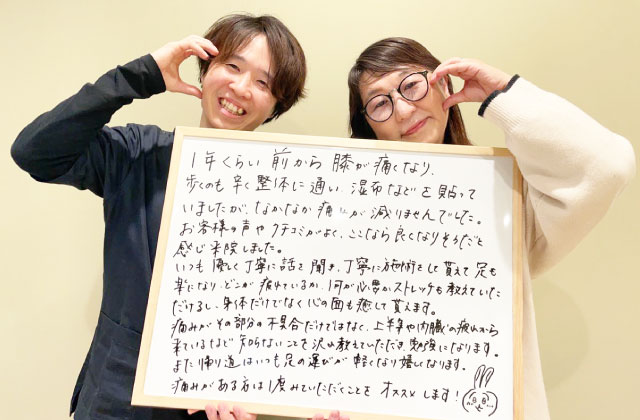 1年くらい前から膝が痛くなり、
歩くのも辛く整体に通い、湿布などを貼って
いましたが、なかなか痛みが減りませんでした。
お客様の声やクチコミがよく、ここなら良くなりそうだと
感じ来院しました。
いつも優しく丁寧に話を聞き、丁寧に施術をして貰えて足も
楽になり、どこが疲れているか、何が必要かストレッチも教えていた
だけるし、身体だけでなく心の面も癒して貰えます。
痛みがその部分の不具合だけではなく、上半身や内臓の疲れから
来ているなど知らないことを沢山教えていただき勉強になります。
また帰り道はいつも足の運びが軽くなり嬉しくなります。
痛みがある方は1度みていただくことをオススメします!